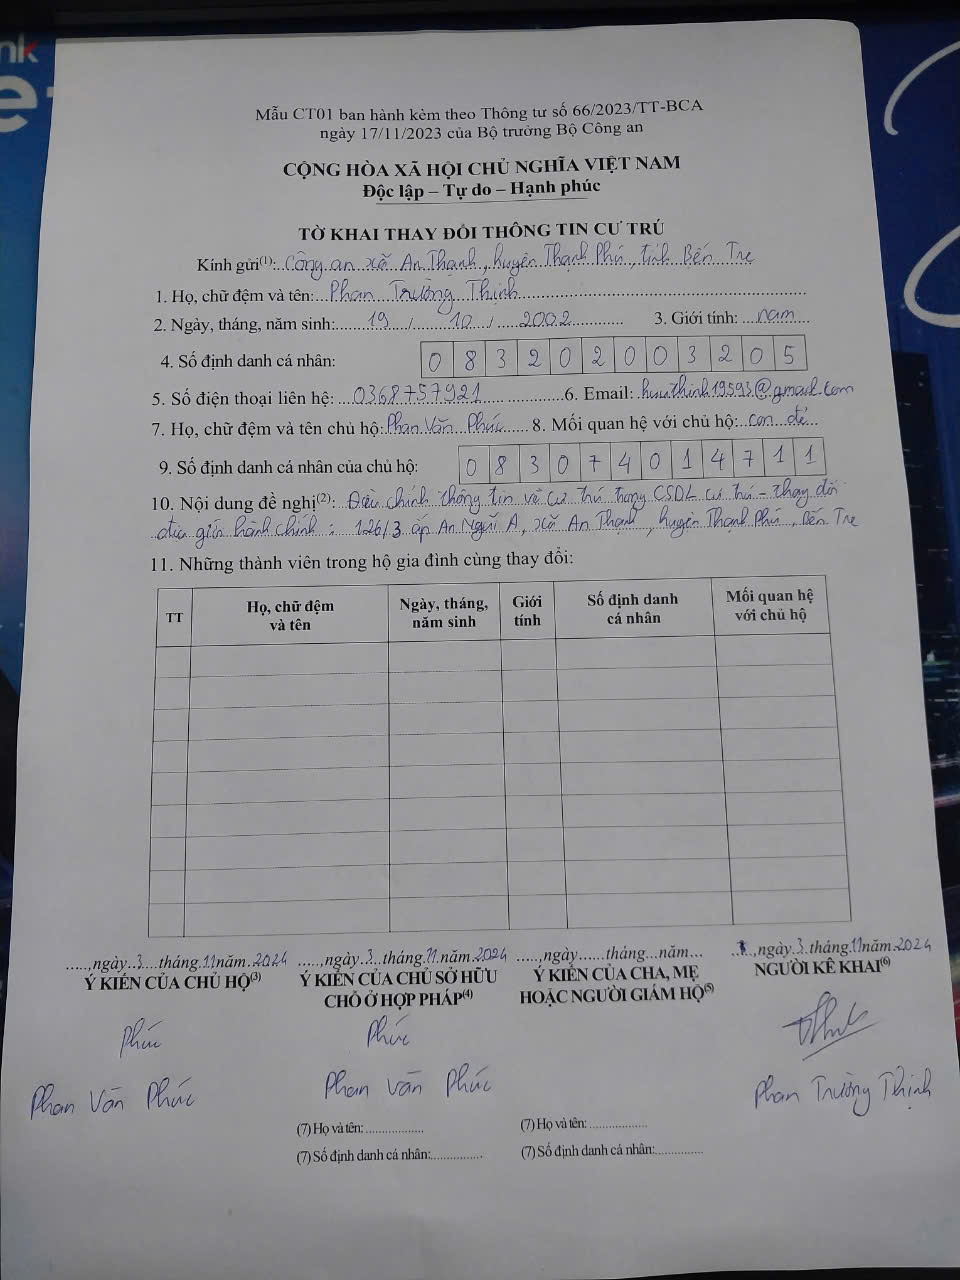 nk
e
Mẫu CT01 ban hành kèm theo Thông tư số 66/2023/TT-BCA
ngày 17/11/2023 của Bộ trưởng Bộ Công an
CỘNG HÒA XÃ HỘI CHỦ NGHĨA VIỆT NAM
Độc lập – Tự do – Hạnh phúc
TỜ KHAI THAY ĐỔI THÔNG TIN CƯ TRÚ
Kính gửi(1): Công an xã An Thạnh, huyện Thạnh Phú, tỉnh Bến Tre
1. Họ, chữ đệm và tên: Phan Trường Thịnh
2. Ngày, tháng, năm sinh: 19 / 10 / 2002 3. Giới tính: nam
4. Số định danh cá nhân: 0 8 3 2 0 2 0 0 3 2 0 5
5. Số điện thoại liên hệ: 0368757921 6. Email: huuthinh19593@gmail.com
7. Họ, chữ đệm và tên chủ hộ: Phan Văn Phúc 8. Mối quan hệ với chủ hộ: con đẻ
9. Số định danh cá nhân của chủ hộ: 0 8 3 0 7 4 0 1 4 7 1 1
10. Nội dung đề nghị(2): Điều chỉnh thông tin về cư trú trong CSDL cư trú - thay đổi
địa giới hành chính: 126/3 ấp An Ngãi A, xã An Thạnh, huyện Thạnh Phú, Bến Tre
11. Những thành viên trong hộ gia đình cùng thay đổi:
TT Họ, chữ đệm và tên Ngày, tháng, năm sinh Giới tính Số định danh cá nhân Mối quan hệ với chủ hộ
....,ngày..3...tháng.11năm.2024 .....,ngày..3..tháng.11.năm.2024 .....,ngày......tháng...năm... ,ngày.3.tháng.11năm.2024
Ý KIẾN CỦA CHỦ HỘ(3) Ý KIẾN CỦA CHỦ SỞ HỮU CHỖ Ở HỢP PHÁP(4) Ý KIẾN CỦA CHA, MẸ HOẶC NGƯỜI GIÁM HỘ(5) NGƯỜI KÊ KHAI(6)
Phúc Phúc
Phan Văn Phúc Phan Văn Phúc Phan Trường Thịnh
(7) Họ và tên: .................. (7) Họ và tên: ..................
(7) Số định danh cá nhân:................ (7) Số định danh cá nhân:...............